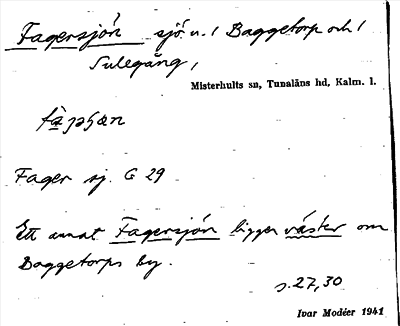 Fagersjön sjö. u. / Baggetorp och /
Sulegång,
Misterhults sn, Tunaläns hd, Kalm. l.
Fager sj. G 29
Ett annat Fagersjön ligger väster om
Baggetorps by.
s. 27, 30
Ivar Modéer 1941